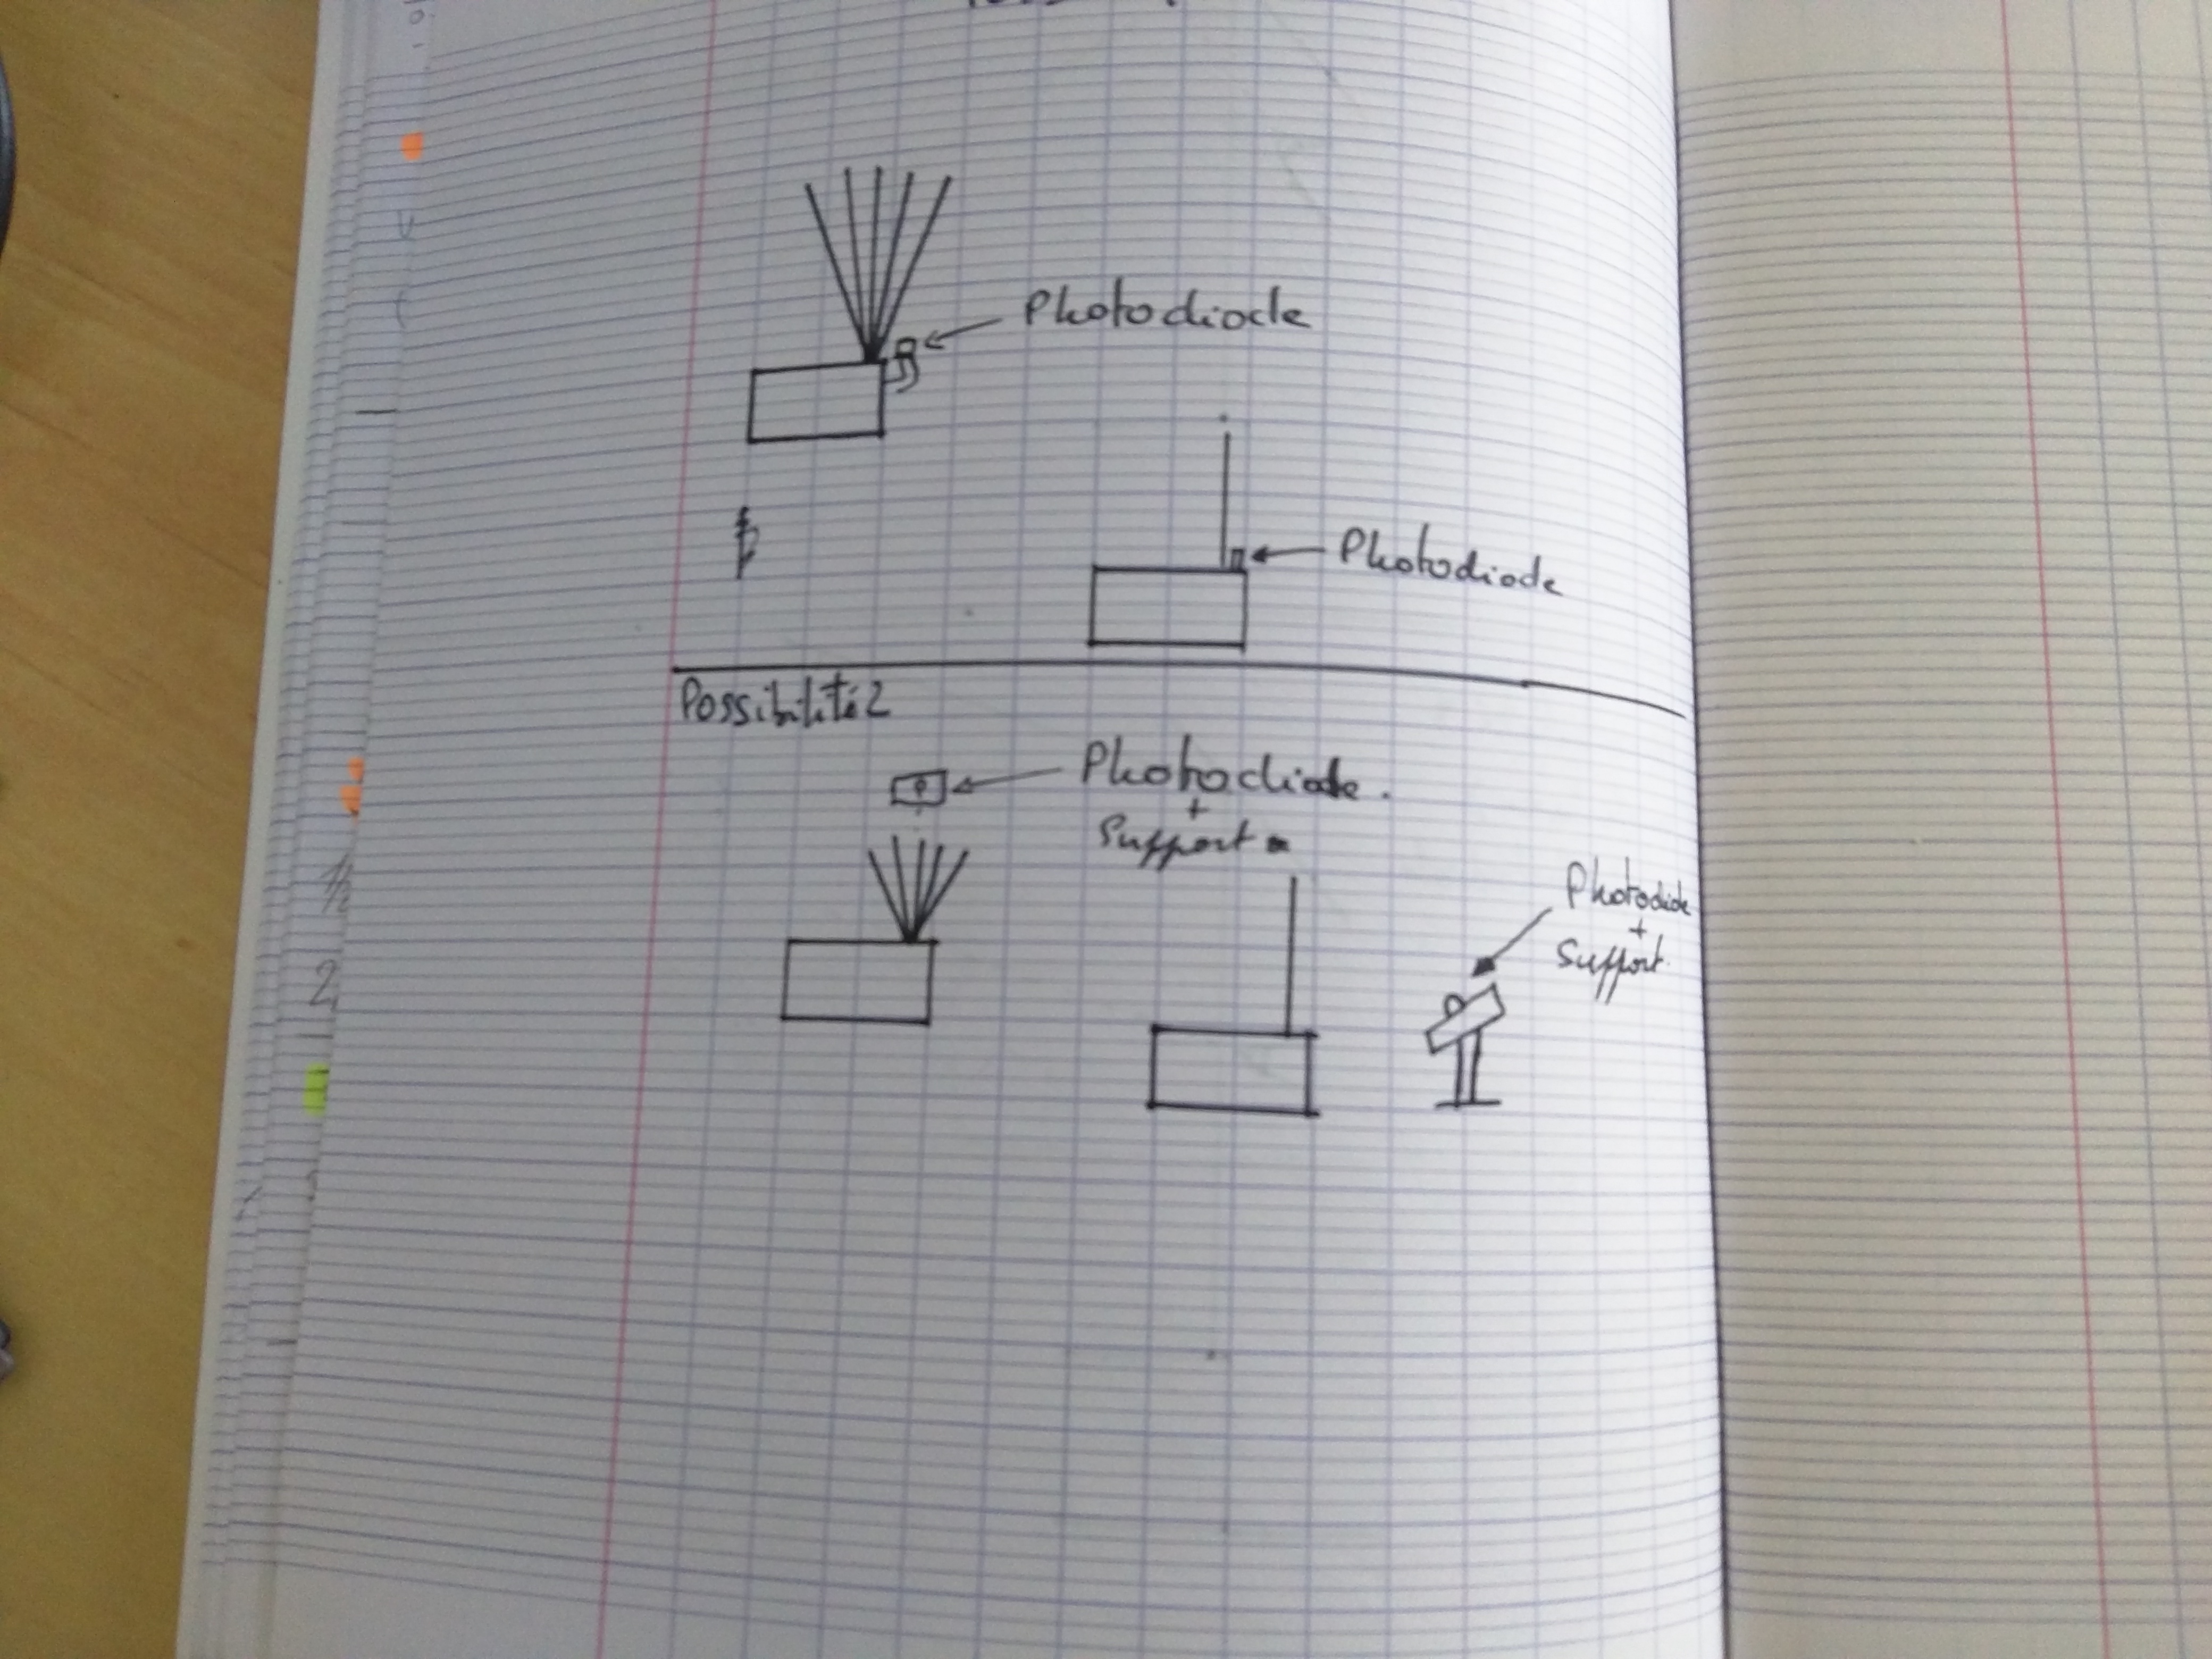 Photodiode
Photodiode
Possibilité 2
Photodiode.
+
Support
Photodiode
+
Support.
1/2
2